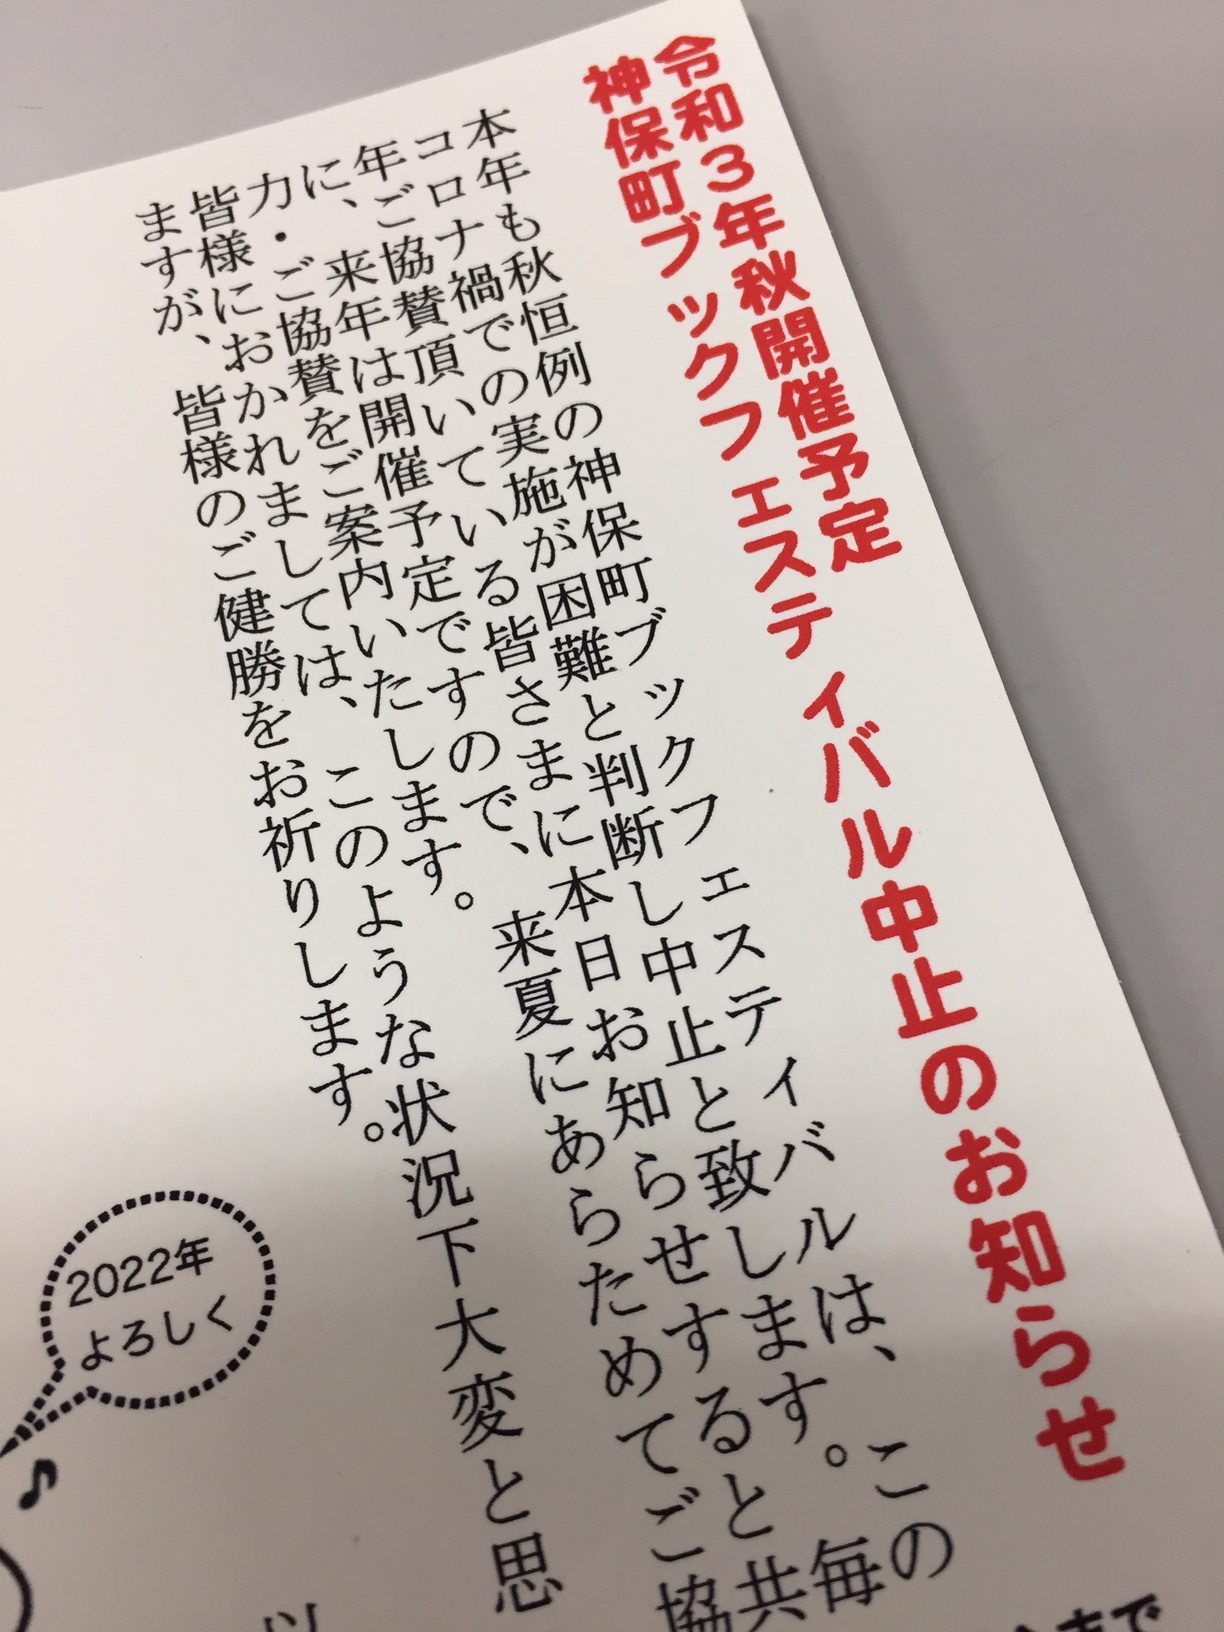 令和3年秋開催予定
神保町ブックフェスティバル中止のお知らせ
本年も秋恒例の神保町ブックフェスティバルは、この
コロナ禍での実施が困難と判断し中止と致します。毎
年ご協賛頂いている皆さまに本日お知らせすると共
に、来年は開催予定ですので、来夏にあらためてご協
力・ご協賛をご案内いたします。
皆様におかれましては、このような状況下大変と思
ますが、皆様のご健勝をお祈りします。
以
2022年
よろしく